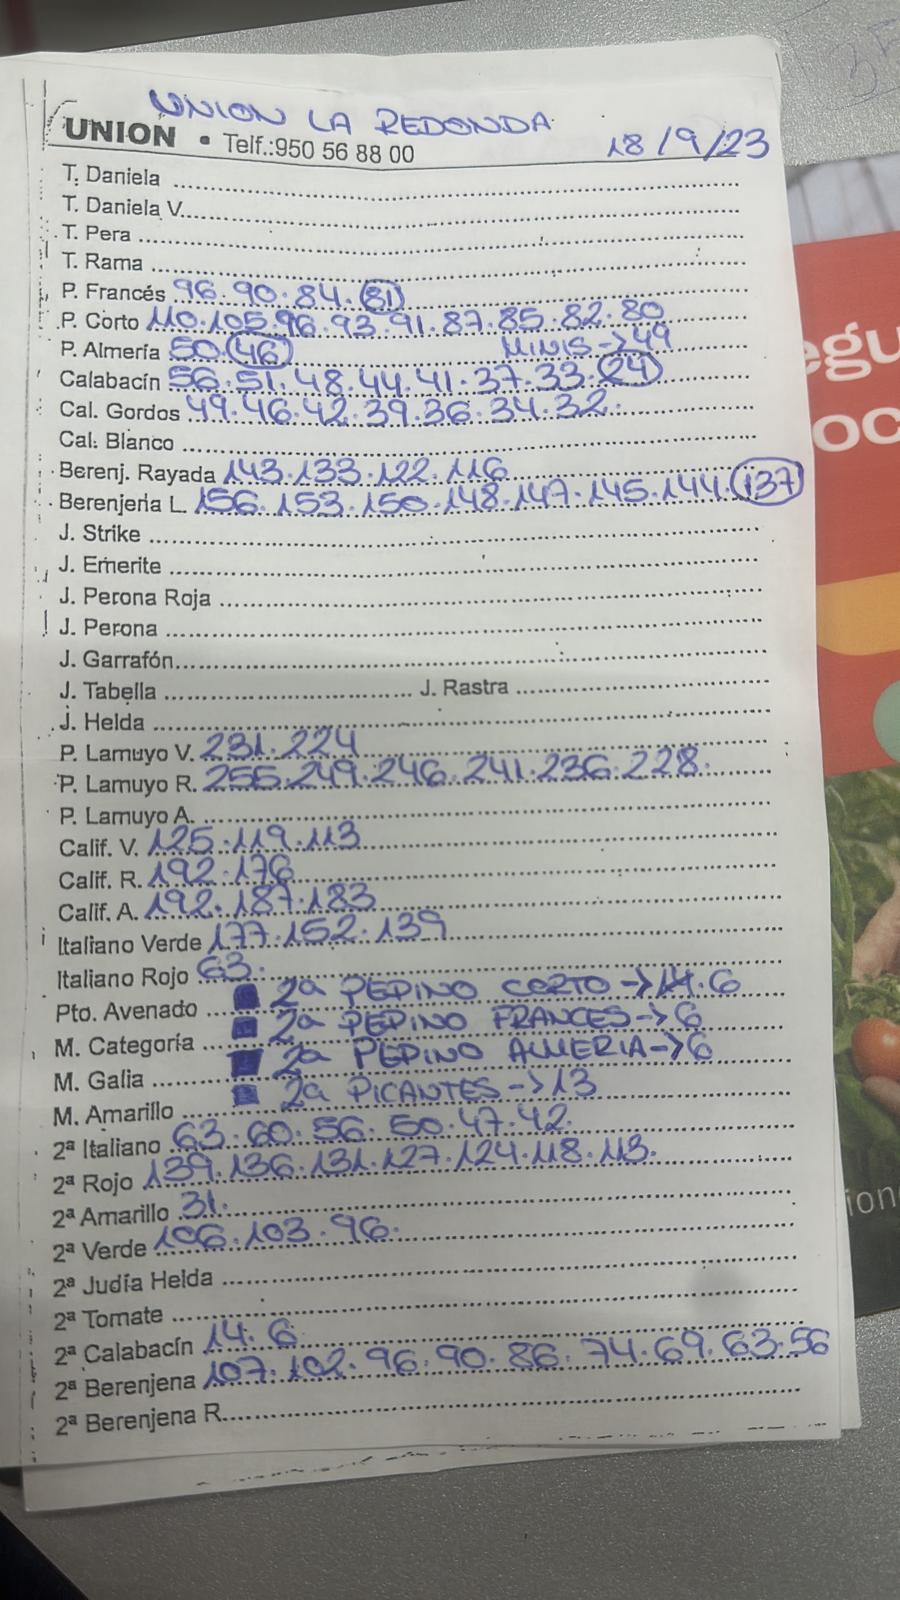 UNION LA REDONDA
UNION • Telf.:950 56 88 00 18/9/23
T. Daniela
T. Daniela V.
T. Pera
T. Rama
P. Francés 96.90.84.81
P. Corto 110.105.96.93.91.87.85.82.80
P. Almería 50.46 MINIS->49
Calabacín 56.51.48.44.41.37.33.24
Cal. Gordos 49.46.42.39.36.34.32.
Cal. Blanco
Berenj. Rayada 143.133.122.116
Berenjena L. 156.153.150.148.147.145.144.137
J. Strike
J. Emerite
J. Perona Roja
J. Perona
J. Garrafón
J. Tabella J. Rastra
J. Helda
P. Lamuyo V. 231.224
P. Lamuyo R. 255.249.246.241.236.228.
P. Lamuyo A.
Calif. V. 125.119.113
Calif. R. 192.176
Calif. A. 192.187.183
Italiano Verde 177.152.139
Italiano Rojo 63.
Pto. Avenado 2ª PEPINO CORTO->14.6
M. Categoría 2ª PEPINO FRANCES->6
M. Galia 2ª PEPINO ALMERIA->6
M. Amarillo 2ª PICANTES->13
2ª Italiano 63.60.56.50.47.42.
2ª Rojo 139.136.131.127.124.118.113.
2ª Amarillo 31.
2ª Verde 106.103.96.
2ª Judía Helda
2ª Tomate
2ª Calabacín 14.6
2ª Berenjena 107.102.96.90.86.74.69.63.56
2ª Berenjena R.
egu
oc
ion